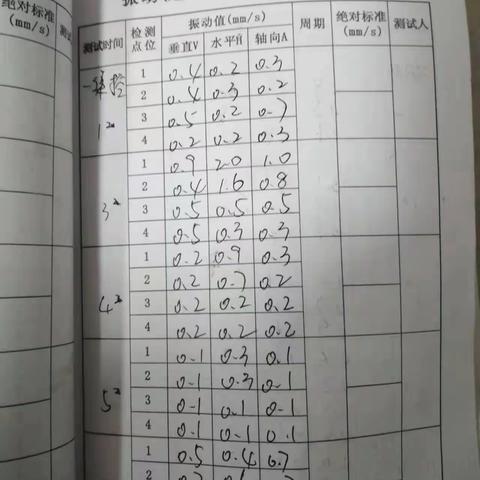 绝对标准 测试
(mm/s)
振动
测试时间 检测点位 振动值(mm/s) 周期 绝对标准(mm/s) 测试人
垂直V 水平H 轴向A
1 0.4 0.2 0.3
2 0.4 0.3 0.2
1# 3 0.5 0.2 0.7
4 0.2 0.2 0.3
1 0.9 2.0 1.0
2 0.4 1.6 0.8
3# 3 0.5 0.5 0.5
4 0.5 0.3 0.3
1 0.2 0.9 0.3
2 0.2 0.7 0.2
4# 3 0.2 0.2 0.2
4 0.2 0.2 0.2
1 0.1 0.3 0.1
2 0.1 0.3 0.1
5# 3 0.1 0.1 0.1
4 0.1 0.1 0.1
1 0.5 0.4 0.7
2